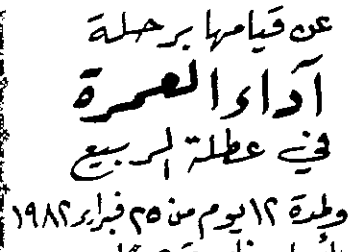 عن قيامها برحلة
آداء العمرة
في عطلة الربيع
ولمدة ١٢ يوم من ٢٥ فبراير ١٩٨٢